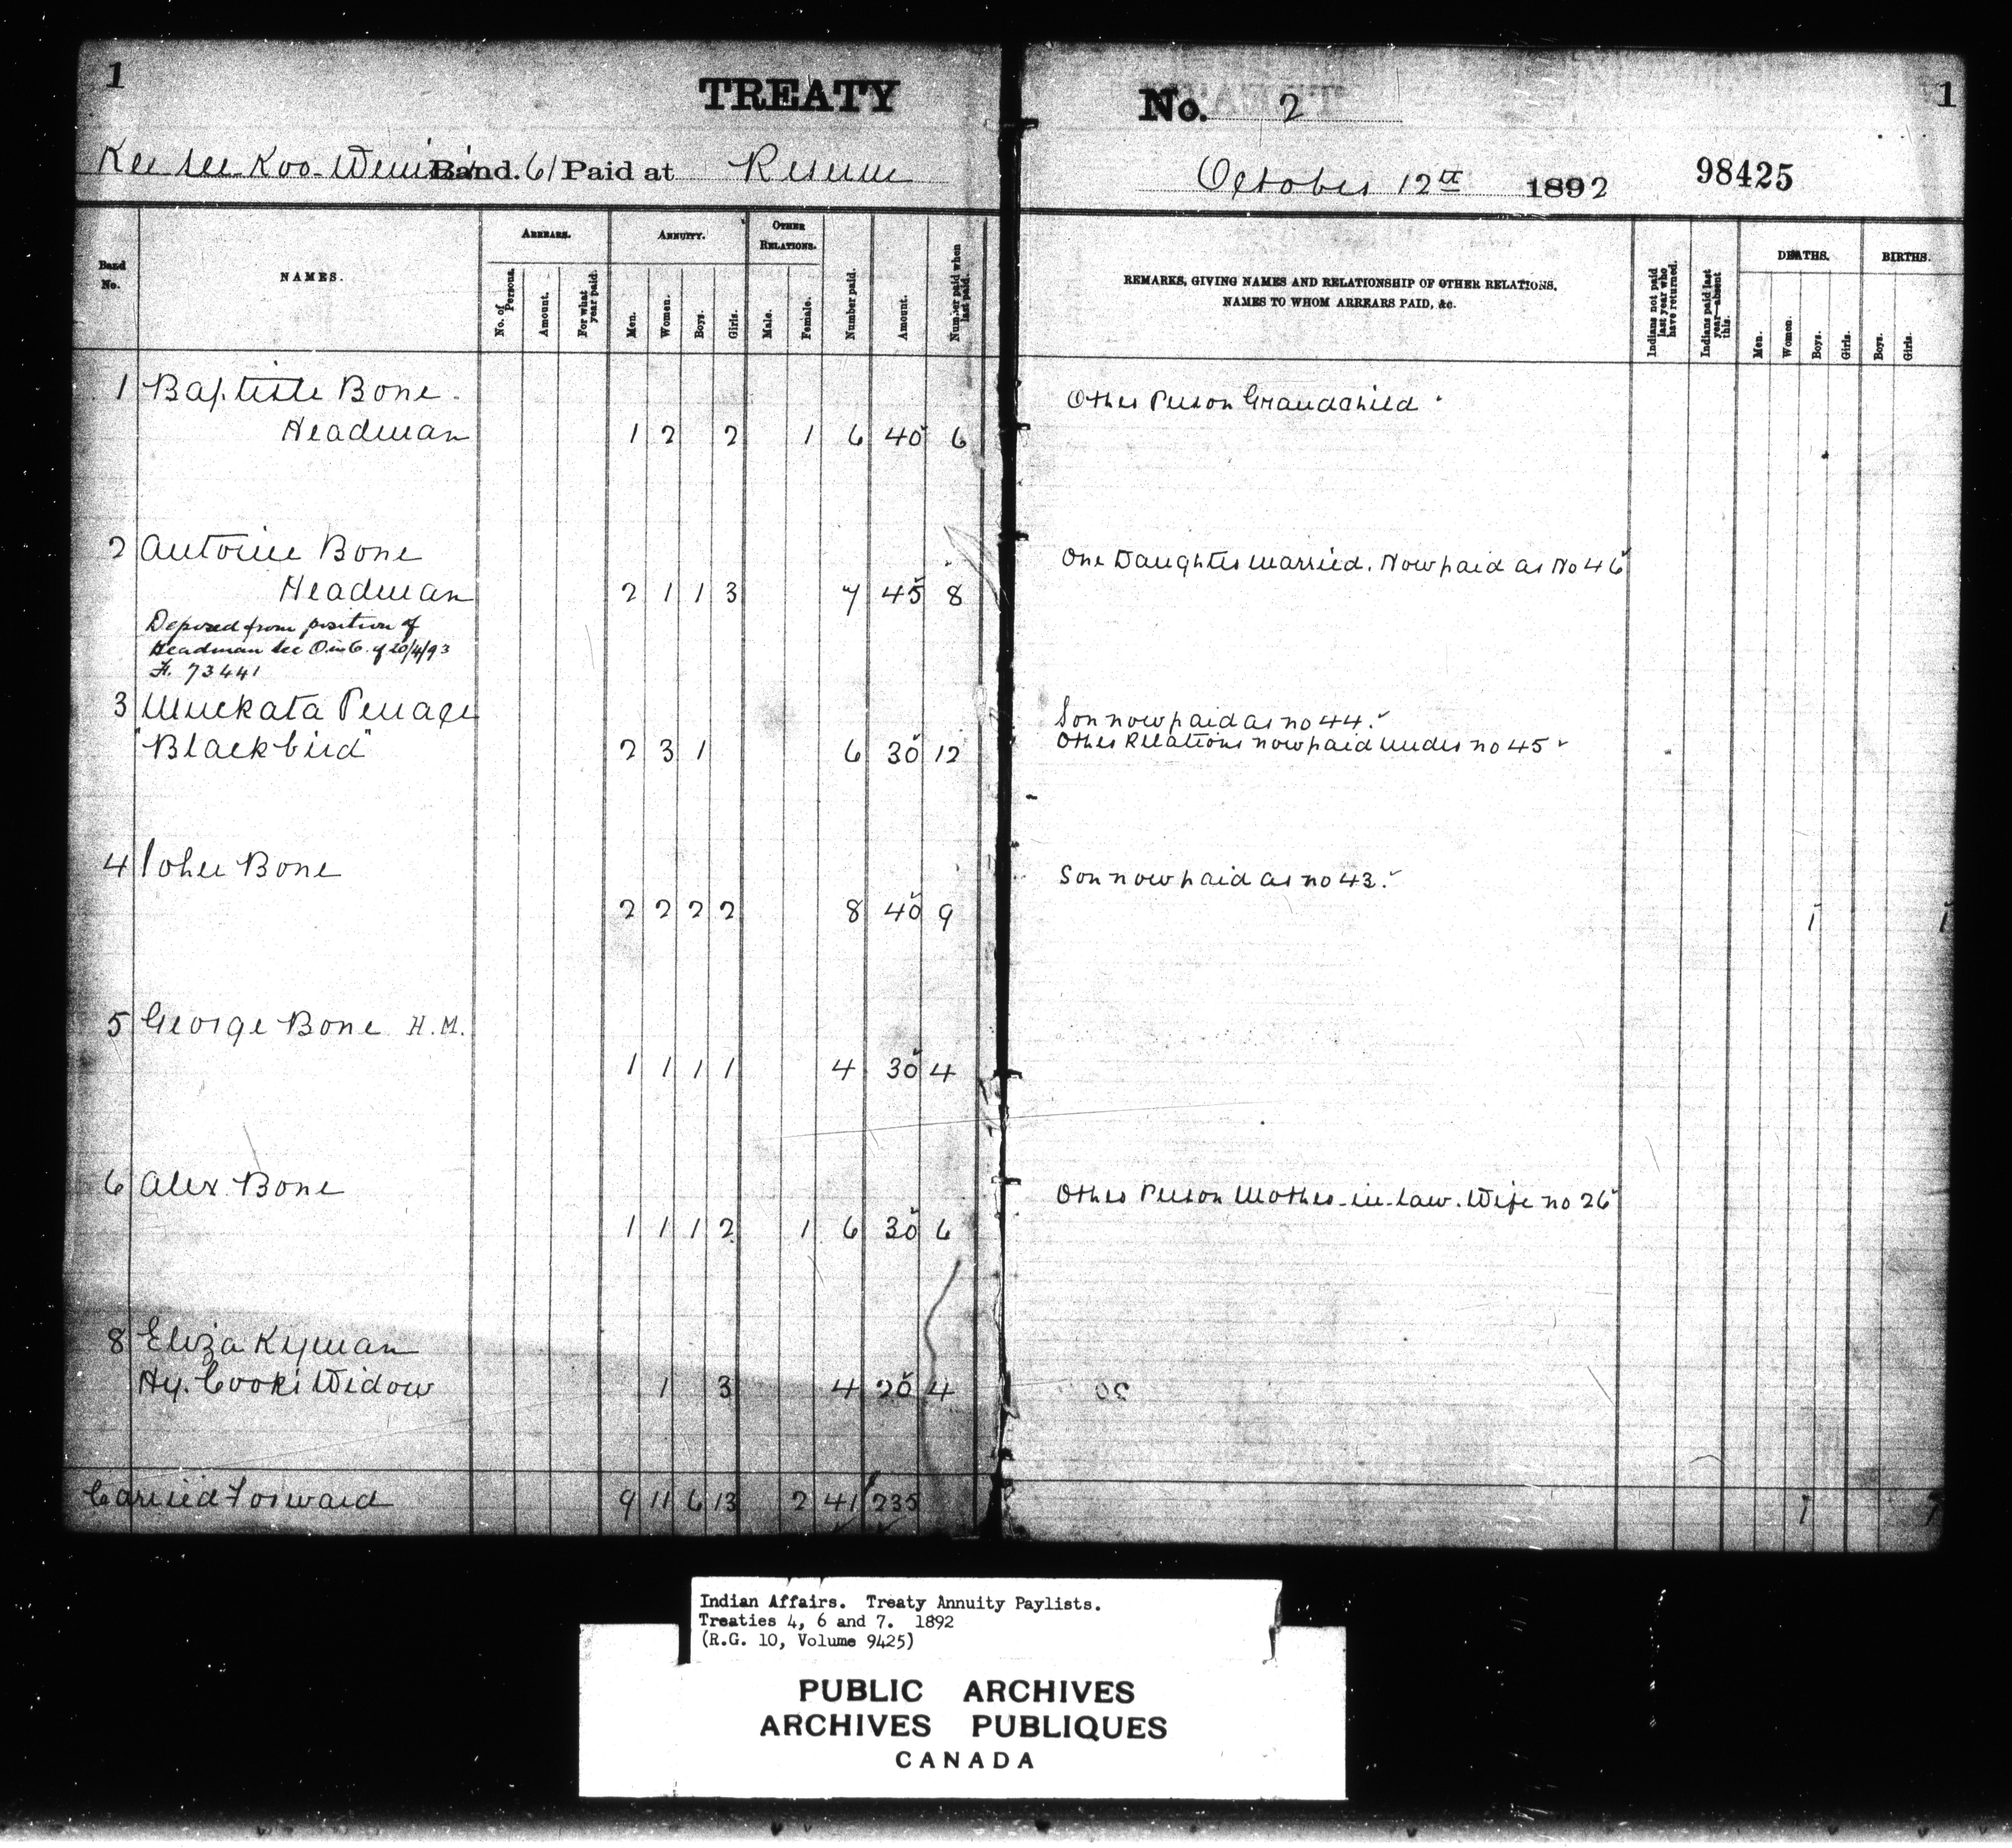 1
TREATY
No. 2
1
Kee-see-Koo-Wenin's Band. 61 Paid at Reserve
October 12th 1892
98425
Band No.
NAMES.
ARREARS.
No. of Persons.
Amount.
For what year paid.
ANNUITY.
Men.
Women.
Boys.
Girls.
OTHER RELATIONS.
Male.
Female.
Number paid.
Amount.
Number paid when last paid.
REMARKS, GIVING NAMES AND RELATIONSHIP OF OTHER RELATIONS,
NAMES TO WHOM ARREARS PAID, &c.
Indians not paid last year who have returned.
Indians paid last year—absent this.
DEATHS.
Men.
Women.
Boys.
Girls.
BIRTHS.
Boys.
Girls.
1 Baptiste Bone
Other Person Grandchild
Headman 1 2 2 1 6 40 6
2 Antoine Bone
One Daughter married. Now paid as No 46
Headman 2 1 1 3 7 45 8
Deposed from position of
Headman see O. in C. of 20/4/93
F. 73441
3 Muckata Penace
Son now paid as no 44.
"Blackbird" 2 3 1 6 30 12
Other Relations now paid under no 45
4 John Bone
Son now paid as no 43.
2 2 2 2 8 40 9 1 1
5 George Bone H.M.
1 1 1 1 4 30 4
6 Alex Bone
Other Person Mother-in-law. Wife no 26
1 1 1 2 1 6 30 6
8 Eliza Kyman
Hy. Cook's Widow 1 3 4 20 4
Carried Forward 9 11 6 13 2 41 235 1 1
Indian Affairs. Treaty Annuity Paylists.
Treaties 4, 6 and 7. 1892
(R.G. 10, Volume 9425)
PUBLIC ARCHIVES
ARCHIVES PUBLIQUES
CANADA